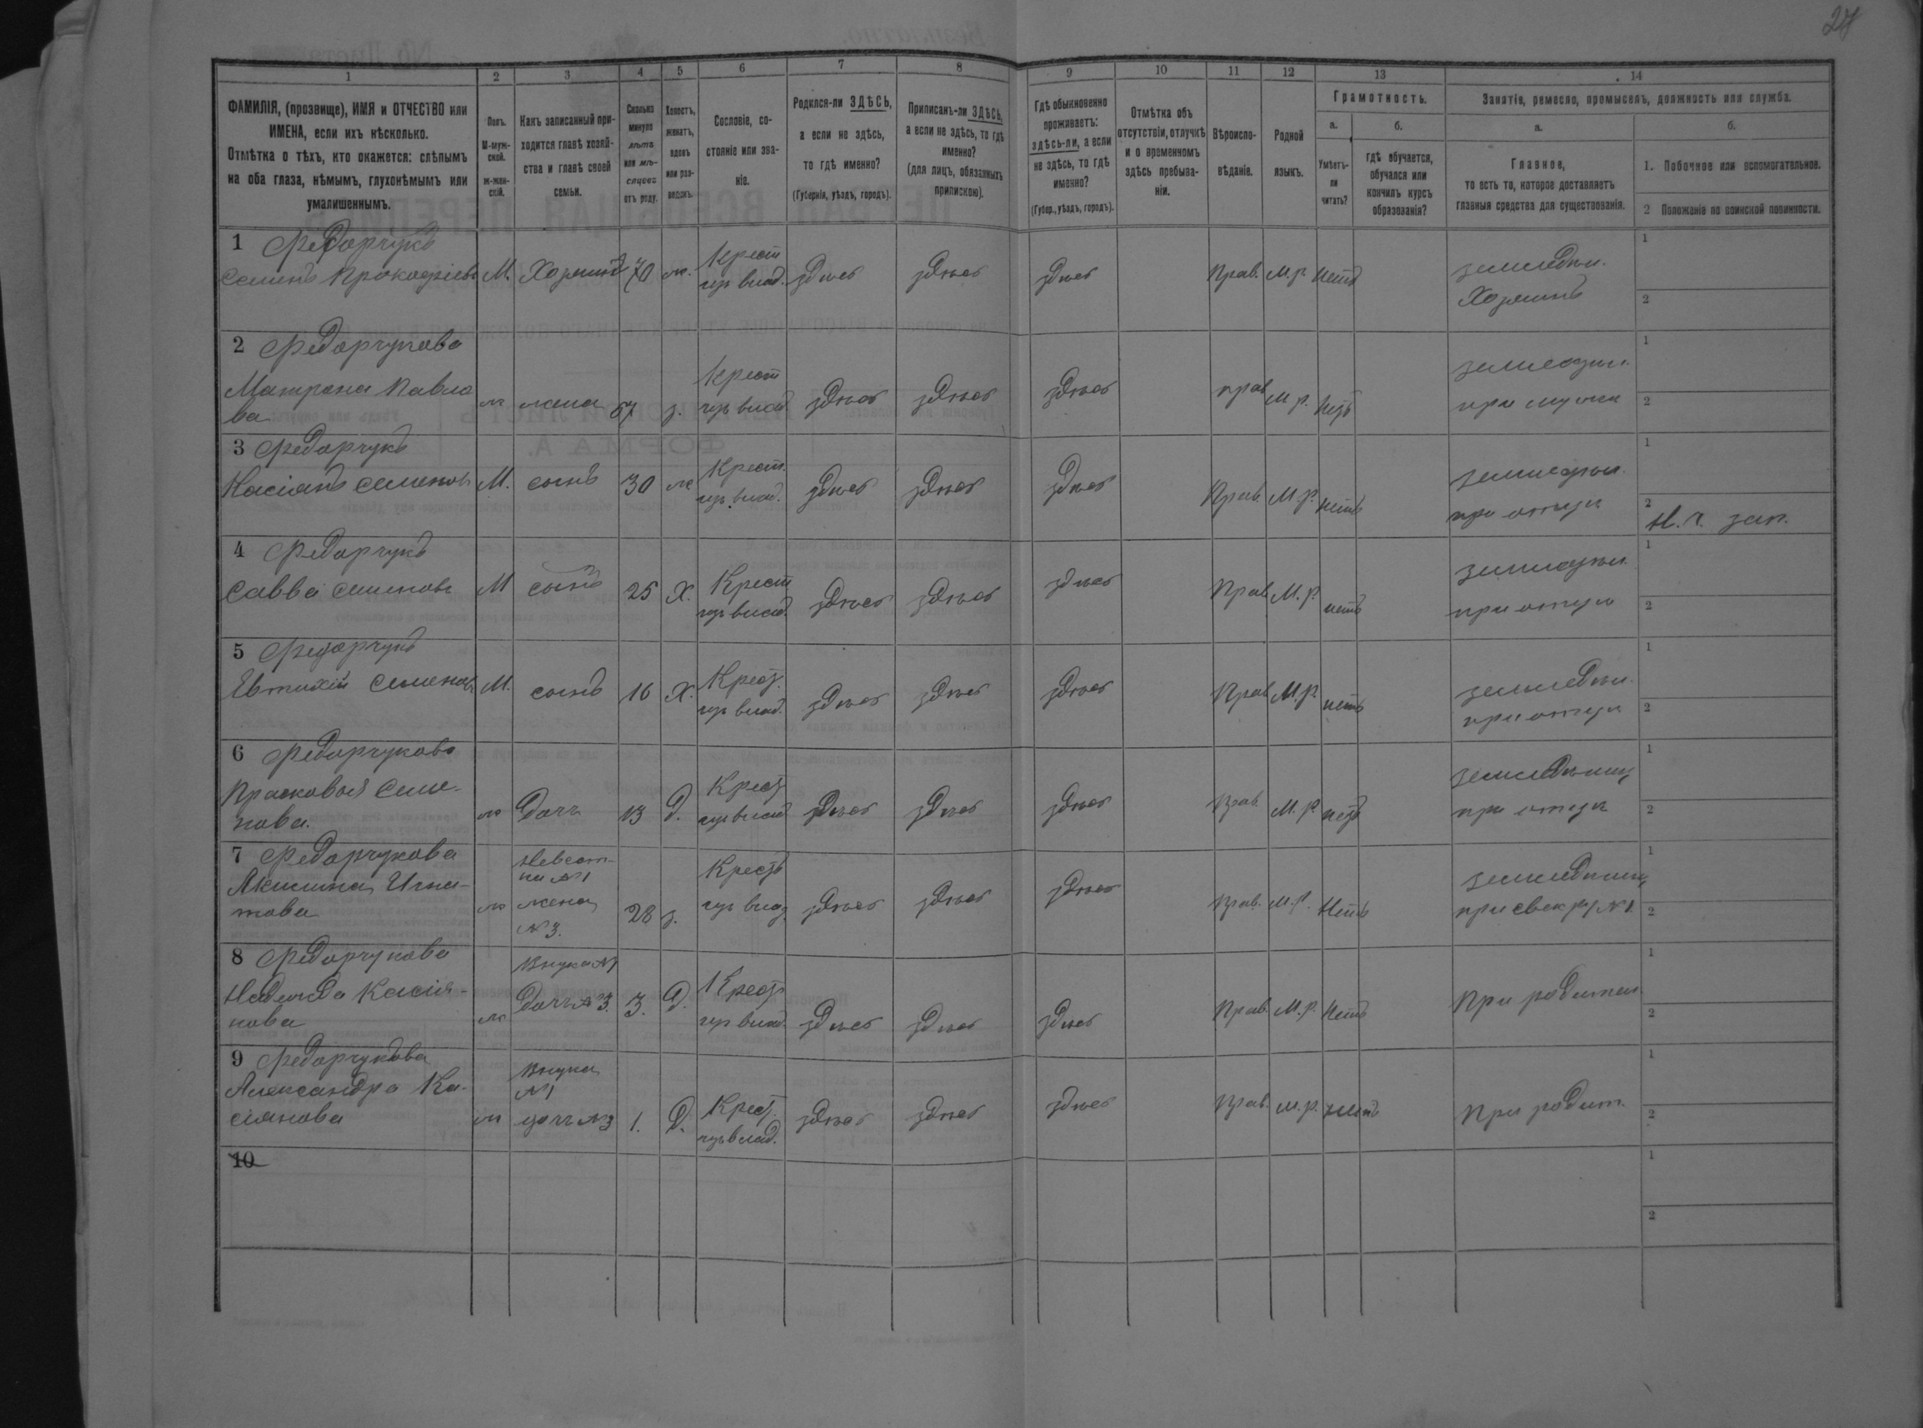 27
1 2 3 4 5 6 7 8 9 10 11 12 13 14
ФАМИЛІЯ, (прозвище), ИМЯ и ОТЧЕСТВО или
ИМЕНА, если ихъ нѣсколько.
Отмѣтка о тѣхъ, кто окажется: слѣпымъ
на оба глаза, нѣмымъ, глухонѣмымъ или
умалишеннымъ.
Полъ.
М-муж-
ской.
ж-жен-
скій.
Какъ записанный при-
ходится главѣ хозяй-
ства и главѣ своей
семьи.
Сколько
минуло
лѣтъ
или мѣ-
сяцевъ
отъ роду.
Холостъ,
женатъ,
вдовъ
или раз-
веденъ.
Сословіе, со-
стояніе или зва-
ніе.
Родился-ли ЗДѢСЬ,
а если не здѣсь,
то гдѣ именно?
(Губернія, уѣздъ, городъ).
Приписанъ-ли ЗДѢСЬ,
а если не здѣсь, то гдѣ
именно?
(для лицъ, обязанныхъ
припискою).
Гдѣ обыкновенно
проживаетъ:
здѣсь-ли, а если
не здѣсь, то гдѣ
именно?
(Губер., уѣздъ, городъ).
Отмѣтка объ
отсутствіи, отлучкѣ
и о временномъ
здѣсь пребыва-
ніи.
Вѣроиспо-
вѣданіе.
Родной
языкъ.
Грамотность.
а.
Умѣетъ-
ли
читать?
б.
гдѣ обучается,
обучался или
кончилъ курсъ
образованія?
Занятіе, ремесло, промыселъ, должность или служба.
а.
Главное,
то есть то, которое доставляетъ
главныя средства для существованія.
б.
1. Побочное или вспомогательное.
2 Положеніе по воинской повинности.
1 Федорчукъ
Семенъ Прокофіевъ М. Хозяинъ 70 ж. Крест
гос влад. здѣсь здѣсь здѣсь Прав. М.р нетъ земледѣл.
Хозяинъ
1
2
2 Федорчукова
Матрона Павло
ва ж жена 67 з. Крест
влад здѣсь здѣсь здѣсь прав М р. нетъ
при мужи
1
2
3 Федорчукъ
Касіянъ Семеновъ М. сынъ 30 ж Крест.
влад. здѣсь здѣсь здѣсь Прав М.р. нетъ
при отцы
1
2
4 Федорчукъ
Савва Семеновъ М сынъ 25 Х. Крест
влад. здѣсь здѣсь здѣсь Прав М.р. нетъ
при отцы
1
2
5 Федорчукъ
Евтихій Семеновъ М. сынъ 16 Х. Крест.
влад. здѣсь здѣсь здѣсь Прав М.р. нетъ земледѣл.
при отцы
1
2
6 Федорчукова
Прасковья Семе-
нова. ж Дочь 13 Д. Крест
влад здѣсь здѣсь здѣсь Прав М.р нетъ
при отцы
1
2
7 Федорчукова
Акилина Игна-
това ж Невест-
ка №1
жена
№3. 28 з. Крестъ
влад здѣсь здѣсь здѣсь Прав. М.р. Нетъ
при свекру №1
1
2
8 Федорчукова
Касія-
нова ж Внука №1
Дочь №3. 3. Д. Крест
влад. здѣсь здѣсь здѣсь Прав. М.р. Нетъ При родител
1
2
9 Федорчукова
Александра Ка-
сіянова ж Внука
№1
дочь №3 1. Д. Крест.
влад. здѣсь здѣсь здѣсь Прав. М.р. нетъ При родит.
1
2
10
1
2